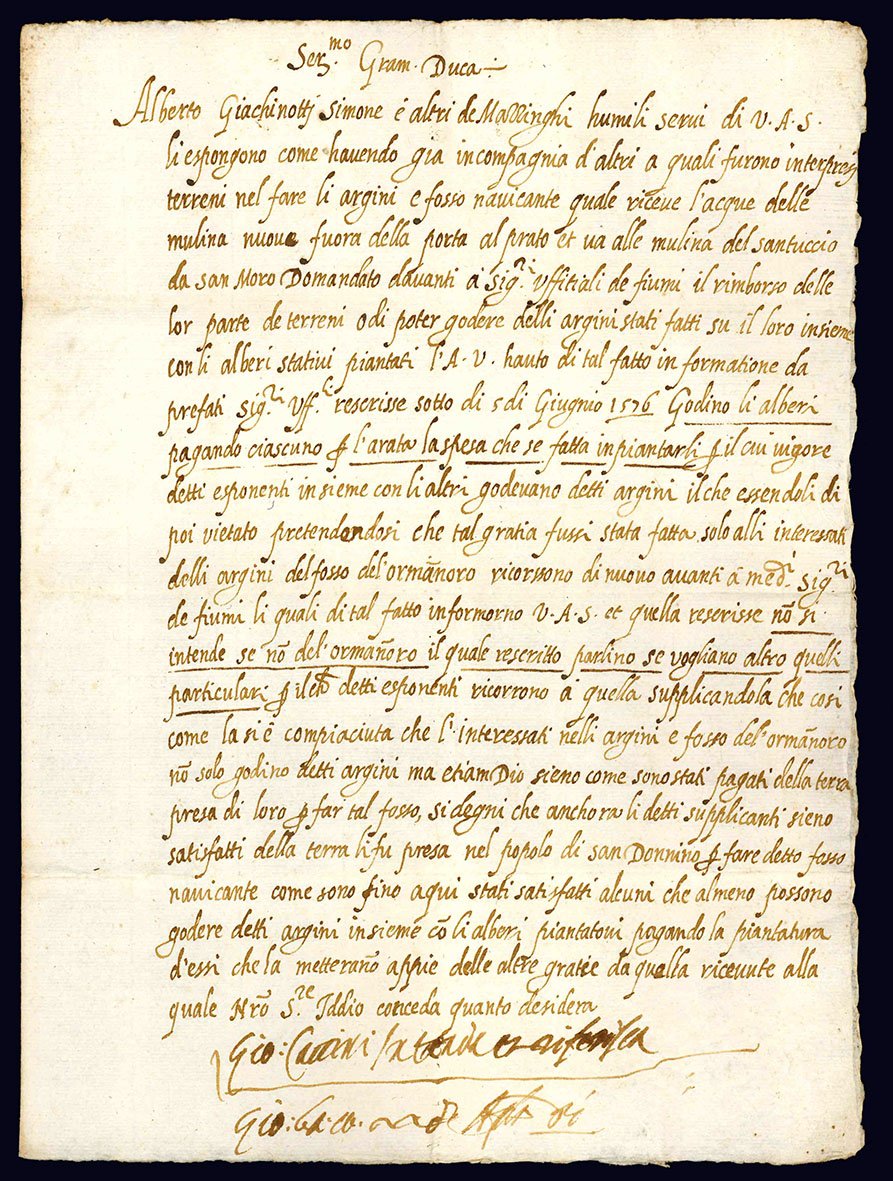 Ser.mo Gram. Duca
Alberto Giachinottj Simone e altri de Mazzinghi humili servi di V. A. S.
li espongono come havendo gia incompagnia d'altri a quali furono interpresi
terreni nel fare li argini e fosso navicante quale riceve l'acque delle
mulina nuove fuora della porta al prato et va alle mulina del santuccio
da san Moro Domandato davanti a Sig.ri Uffitiali de fiumi il rimborso delle
lor parte de terreni o di poter godere delli argini stati fatti su il loro insieme
con li alberi stativi piantati l'A. V. hauto di tal fatto informatione da
prefati Sig.ri Uff.li rescrisse sotto di 5 di Giugnio 1576 Godino li alberi
pagando ciascuno ꝑ l'arata la spesa che se fatta in piantarli ꝑ il cui vigore
detti esponenti insieme con li altri godevano detti argini il che essendoli di
poi vietato pretendendosi che tal gratia fussi stata fatta solo alli interessati
delli argini del fosso del'ormañoro ricorsono di nuovo avanti a med.i Sig.ri
de fiumi li quali di tal fatto informorno V. A. S. et quella rescrisse nõ si
intende se nõ del'ormañoro il quale rescritto parlino se vogliano altro quelli
particulari ꝑ il detti esponenti ricorrono a quella supplicandola che cosi
come la si è compiaciuta che l'interessati nelli argini e fosso del'ormañoro
nõ solo godino detti argini ma etiam Dio sieno come sono stati pagati della terra
presa di loro ꝑ far tal fosso, si degni che anchora li detti supplicanti sieno
satisfatti della terra li fu presa nel popolo di san Donnino ꝑ fare detto fosso
navicante come sono fino a qui stati satisfatti alcuni che almeno possono
godere detti argini insieme cõ li alberi piantatovi pagando la piantatura
d'essi che la metterañо appie delle altre gratie da quella ricevute alla
quale Nrõ S.re Iddio conceda quanto desidera
Gio: Caccini
Gio: